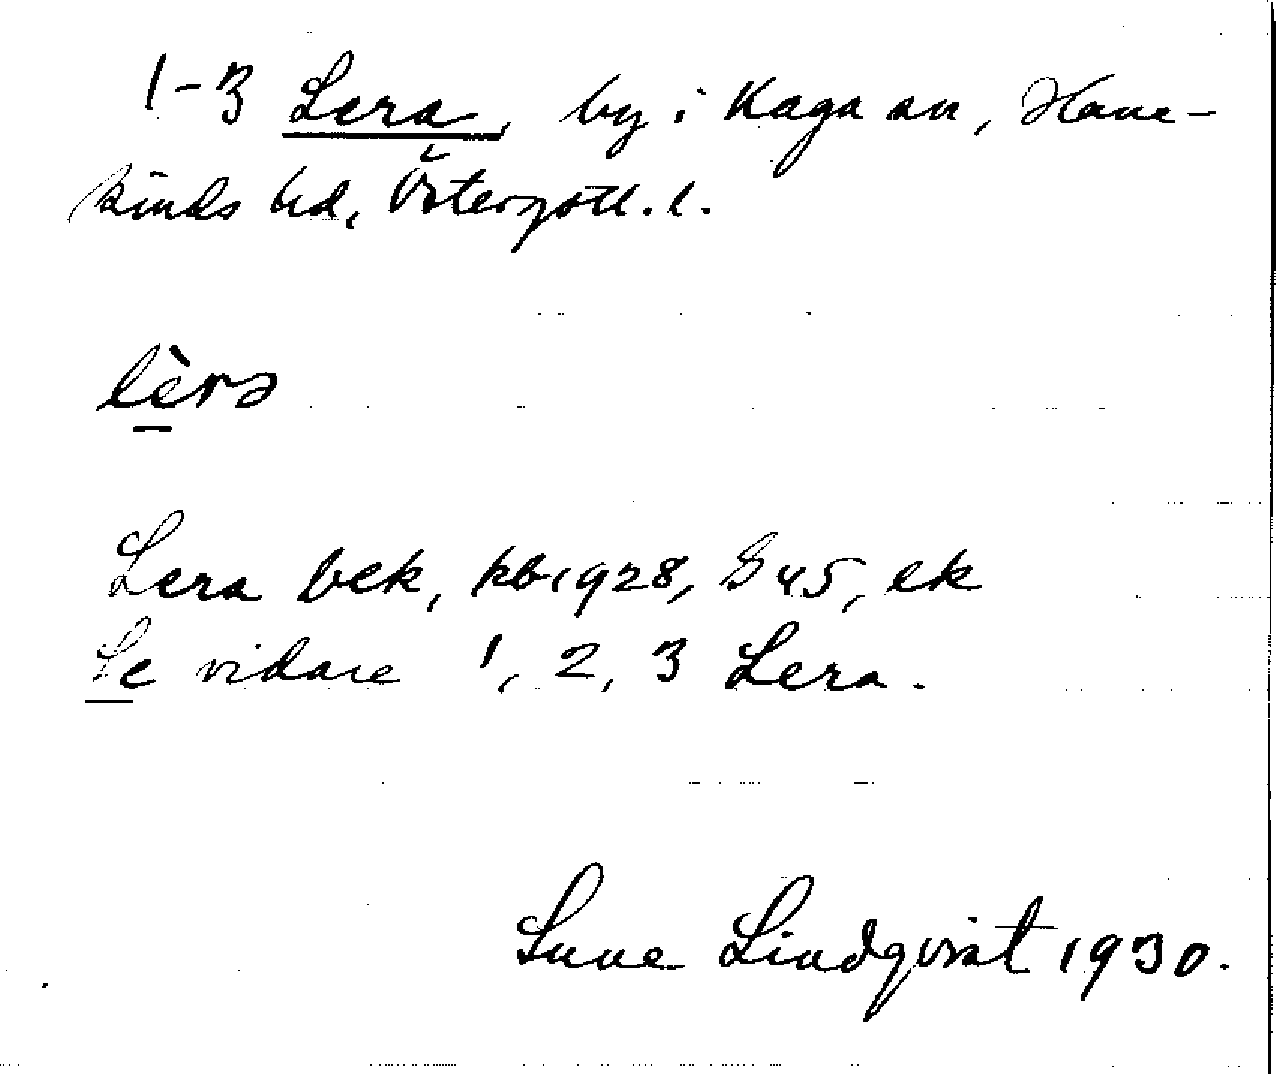 1-3 Lera, by i Kaga sn, Hane-
kinds hd, Östergötl. l.
lèrə
Lera bek, kb 1928, S 45, ek
Se vidare 1, 2, 3 Lera.
Sune Lindqvist 1930.